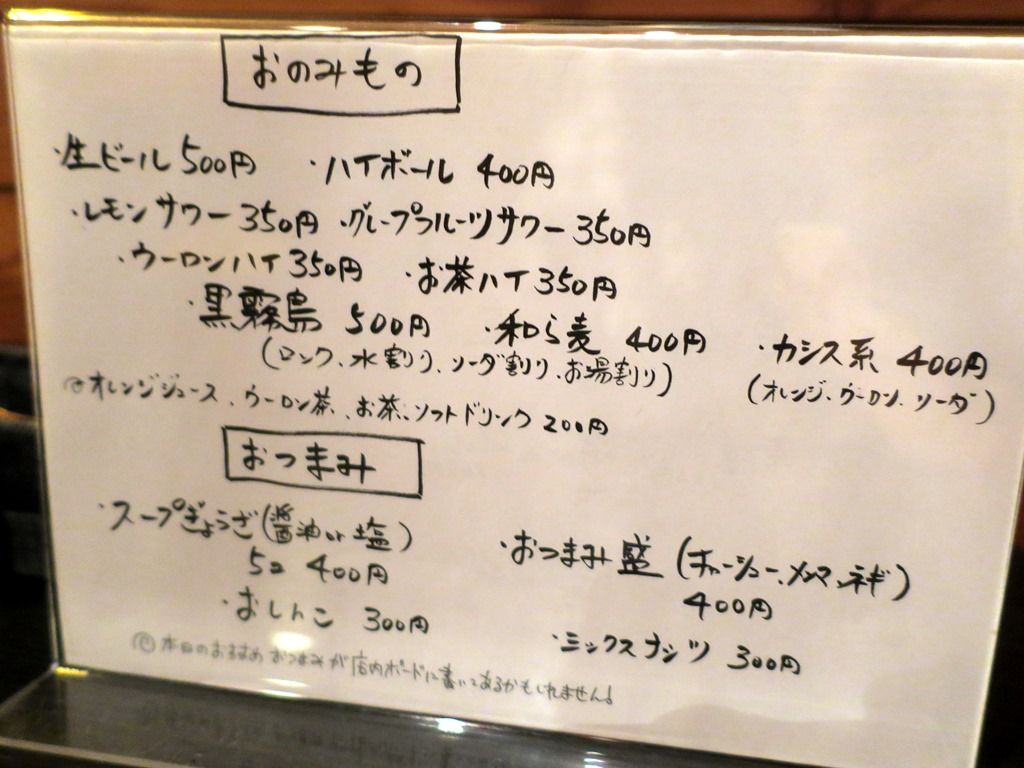 おのみもの
・生ビール 500円 ・ハイボール 400円
・レモンサワー 350円 ・グレープフルーツサワー 350円
・ウーロンハイ 350円 ・お茶ハイ 350円
・黒霧島 500円 ・和ら麦 400円 ・カシス系 400円
(ロック、水割り、ソーダ割り、お湯割り) (オレンジ、ウーロン、ソーダ)
オレンジジュース、ウーロン茶、お茶、ソフトドリンク 200円
おつまみ
・スープぎょうざ(醤油or塩)
5コ 400円
・おつまみ盛(チャーシュー、メンマ、ネギ)
400円
・おしんこ 300円
・ミックスナッツ 300円
本日のおすすめおつまみが店内ボードに書いてあるかもしれません!